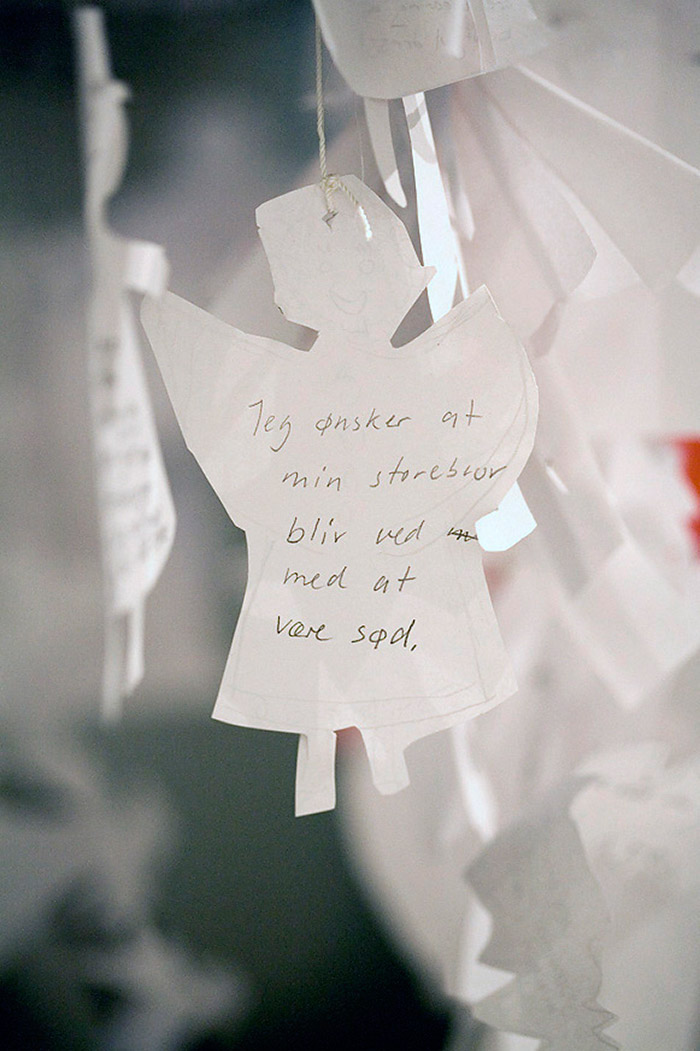 Jeg ønsker at
min storebror
bliv ved
med at
være sød.